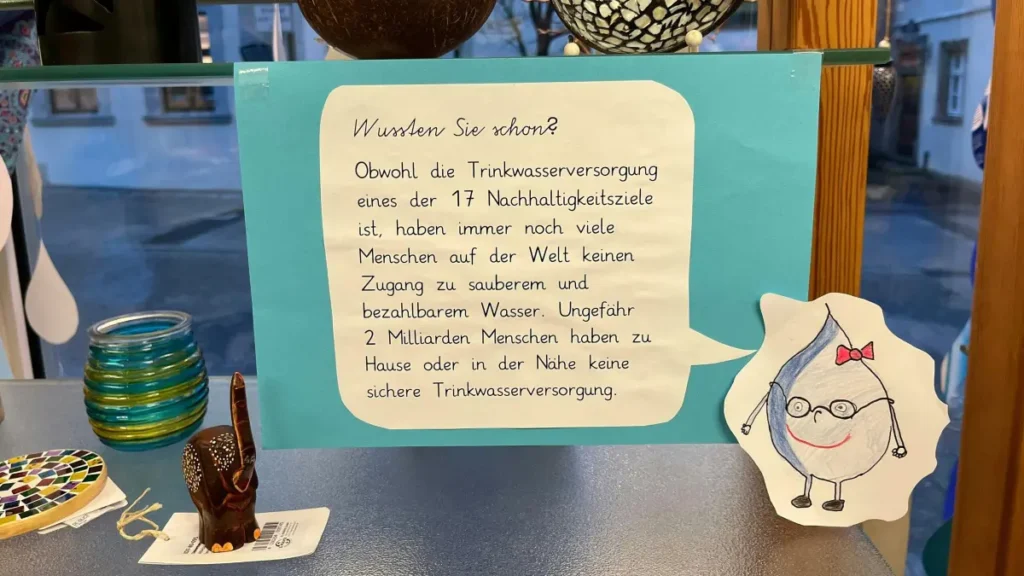 Wussten Sie schon?
Obwohl die Trinkwasserversorgung
eines der 17 Nachhaltigkeitsziele
ist, haben immer noch viele
Menschen auf der Welt keinen
Zugang zu sauberem und
bezahlbarem Wasser. Ungefähr
2 Milliarden Menschen haben zu
Hause oder in der Nähe keine
sichere Trinkwasserversorgung.